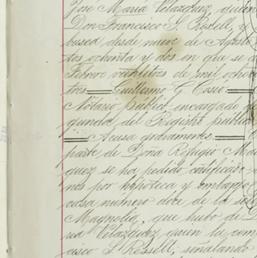 José María Velazquez, quien
Don Francisco S. Rosell, y
busca desde nueve de Agosto
tos ochenta y dos en que se
Febrero veintitres de mil ocho
tros — Guillermo G. Cosio —
Notario público encargado
del Registro público
— Acusa gravámenes —
parte de Doña Refugio
quez se ha pedido certificado
nes por hipoteca y embargo
casa número doce de la
Magnolia, que hubo de D
sa Velazquez quien la com
cisco S. Rosell, señalando